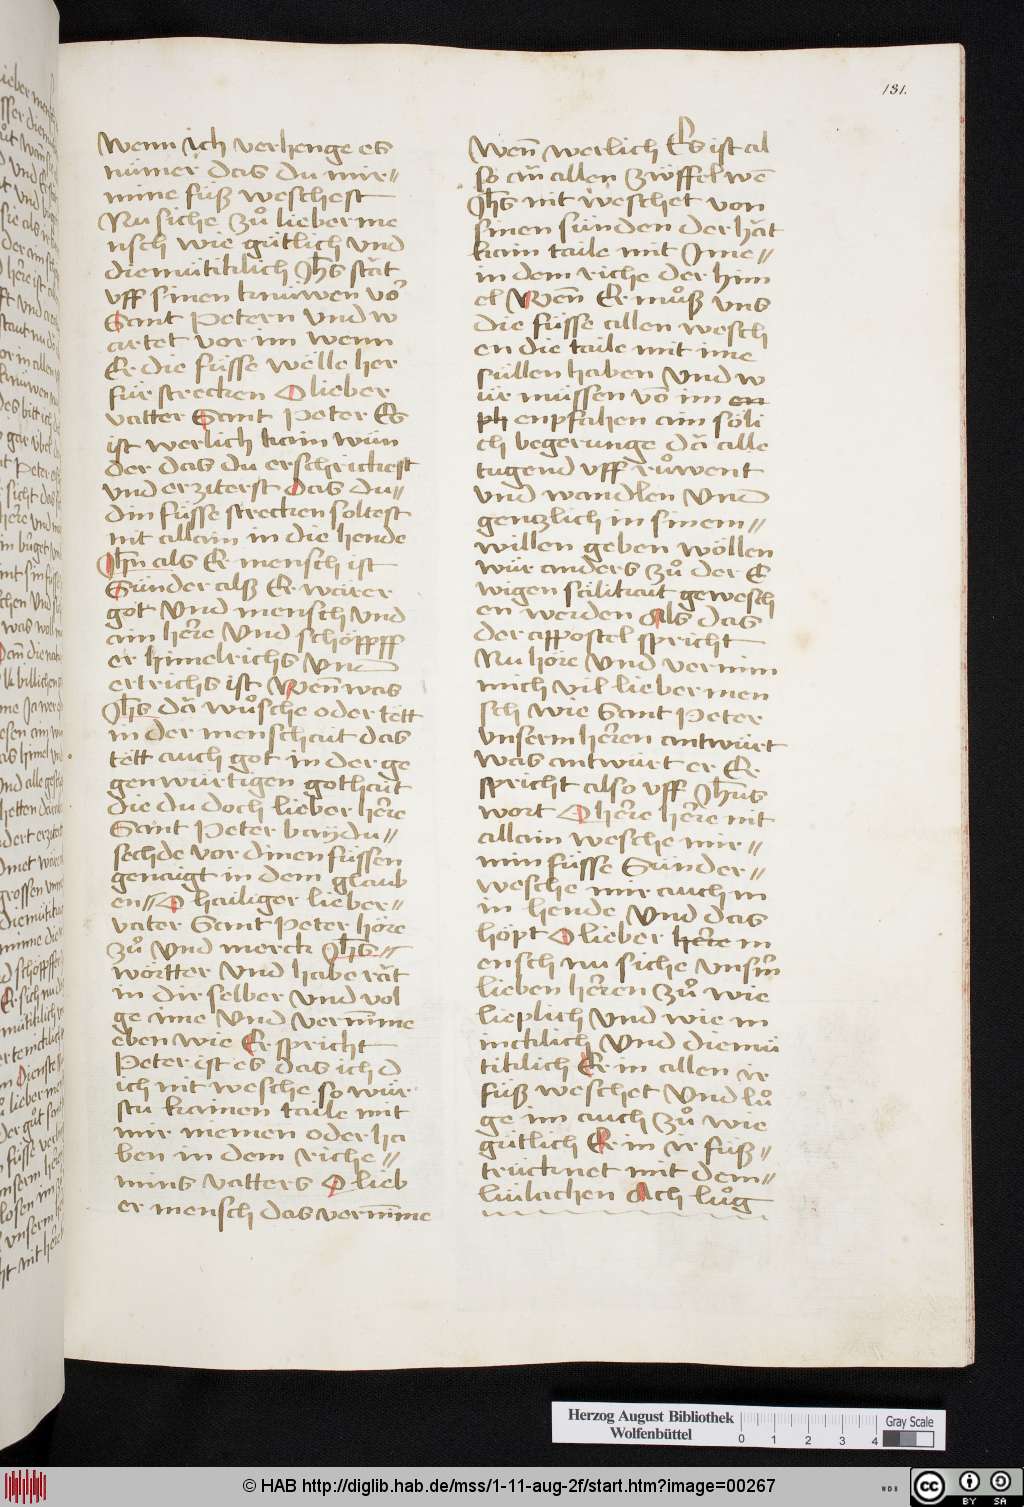 131.
wenn ich verhenge es
nümer das du mir⸗
mine füß weschest
Nu siche zuͦ lieber me
nsch wie gütlich vnd
diemütiklich Jhs stät
vff sinen knüwen vor
Sant Petern vnd w
artet vor im wenn
Er die füsse wölle her
für strecken O lieber
vatter Sant Peter Es
ist werlich kain wun
der das du erschrickest
vnd erziterst das du⸗
din füsse strecken soltest
nit allain in die hende
Jhu als Er mensch ist
Sunder alß Er warer
got vnd mensch vnd
ain here vnd schöpff
er himelrichs vnd
ertrichs ist Wenn was
Jhs dä wuͦsche oder tett
in der menschait das
tett auch got in der ge
genwürtigen gothait
die du doch lieber here
Sant Peter baÿdu⸗
sechde vor dinen füssen
genaigt in dem glaub
en⸗ O hailiger lieber⸗
vater Sant Peter höre
zuͦ vnd merck Jhs⸗
wörtter vnd habe rät
in dir selber vnd vol
ge ime vnd vernime
eben wie Er spricht
Peter ist es das ich d
ich nit wesche so wür
stu kainen taile mit
mir niemen oder ha
ben in dem riche⸗
mins vatters O lieb
er mensch das vernime
wen̄ werlich Es ist al
so an̄ allen zwÿffel we͂
Jhs nit weschet von
sinen sünden der hät
kain taile mit Jme⸗
in dem riche der him
el Wen̄ Er muͦß vns
die füsse allen wesch
en die taile mit ime
süllen haben vnd w
ür müssen vo͂ im en
ph enpfahen ain söli
ch begerunge dä alle
tugend vff ruͦwent
vnd wandlen vnd
gentzlich in sinem⸗
willen geben wöllen
wür anders zuͦ der E
wigen sälikait gewesch
en werden Als das
der appostel spricht
Nu höre vnd vernim
mich vil lieber men
sch wie Sant Peter
vnserm heren antwürt
was antwürt er Er
spricht also vff Jhus
wort O here here nit
allain wesche mir⸗
min füsse Sunder⸗
wesche mir auch m
in hende vnd das
höpt O lieber here m
ensch nu siche vnserm
lieben heren zuͦ wie
lieplich vnd wie in
neklich vnd diemü
tiklich Er in allen ir
füß weschet vnd luͦ
ge im auch zuͦ wie
gütlich Er in ir füß⸗
trücknet mit dem⸗
lilachen Ach luͦg
Herzog August Bibliothek
Wolfenbüttel
0 1 2 3 4
Gray Scale
© HAB http://diglib.hab.de/mss/1-11-aug-2f/start.htm?image=00267
WDB
cc BY SA